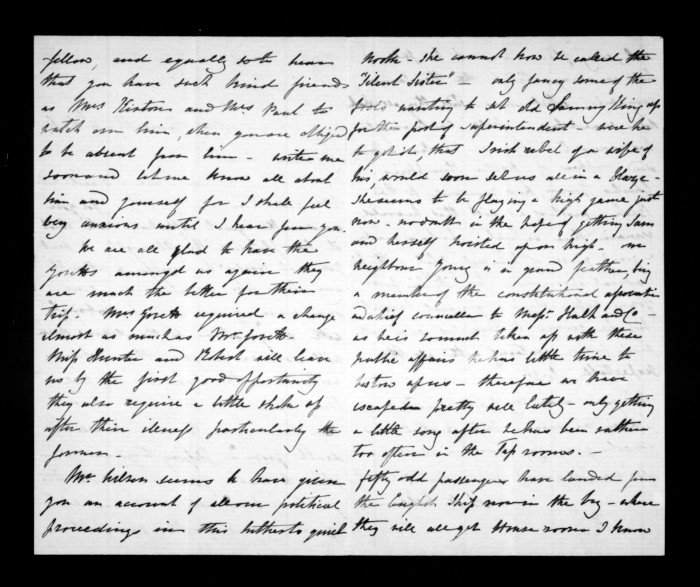 fellow, and equally so to hear
that you have such kind friends
as Mrs Kinton and Mrs Paul to
watch over him, when you are obliged
to be absent from him - write me
soon and let me know all about
him and yourself for I shall feel
very anxious until I hear from you.
We are all glad to have the
amongst us again they
are much the better for their
trip. Mrs required a change
almost as much as Mr
Miss Hunter and will leave
us by the first good opportunity
they also require a little shake up
after their illness particularly the
former.
Mr Wilson seems to have given
you an account of all our political
proceedings in this hitherto quiet
nook - she cannot now be called the
"Silent Sister" - only fancy some of the
fools wanting to set old Sammy King up
for the post of Superintendent - were he
to get it, that Irish rebel of a wife of
his, would soon set us all in a blaze -
She seems to be playing a high game just
now - no doubt in the hope of getting Sam
and herself hoisted up on high - our
neighbour Young is in grand feather, being
a member of the constitutional association
and chief councillor to Messrs Halk and Co -
as he is so much taken up with these
public affairs he has little time to
bestow upon us - therefore we have
escaped pretty well lately - only getting
a little song after he has been rather
too often in the Tap rooms. -
fifty odd passengers have landed from
the English Ship now in the bay - where
they will all get House room I know